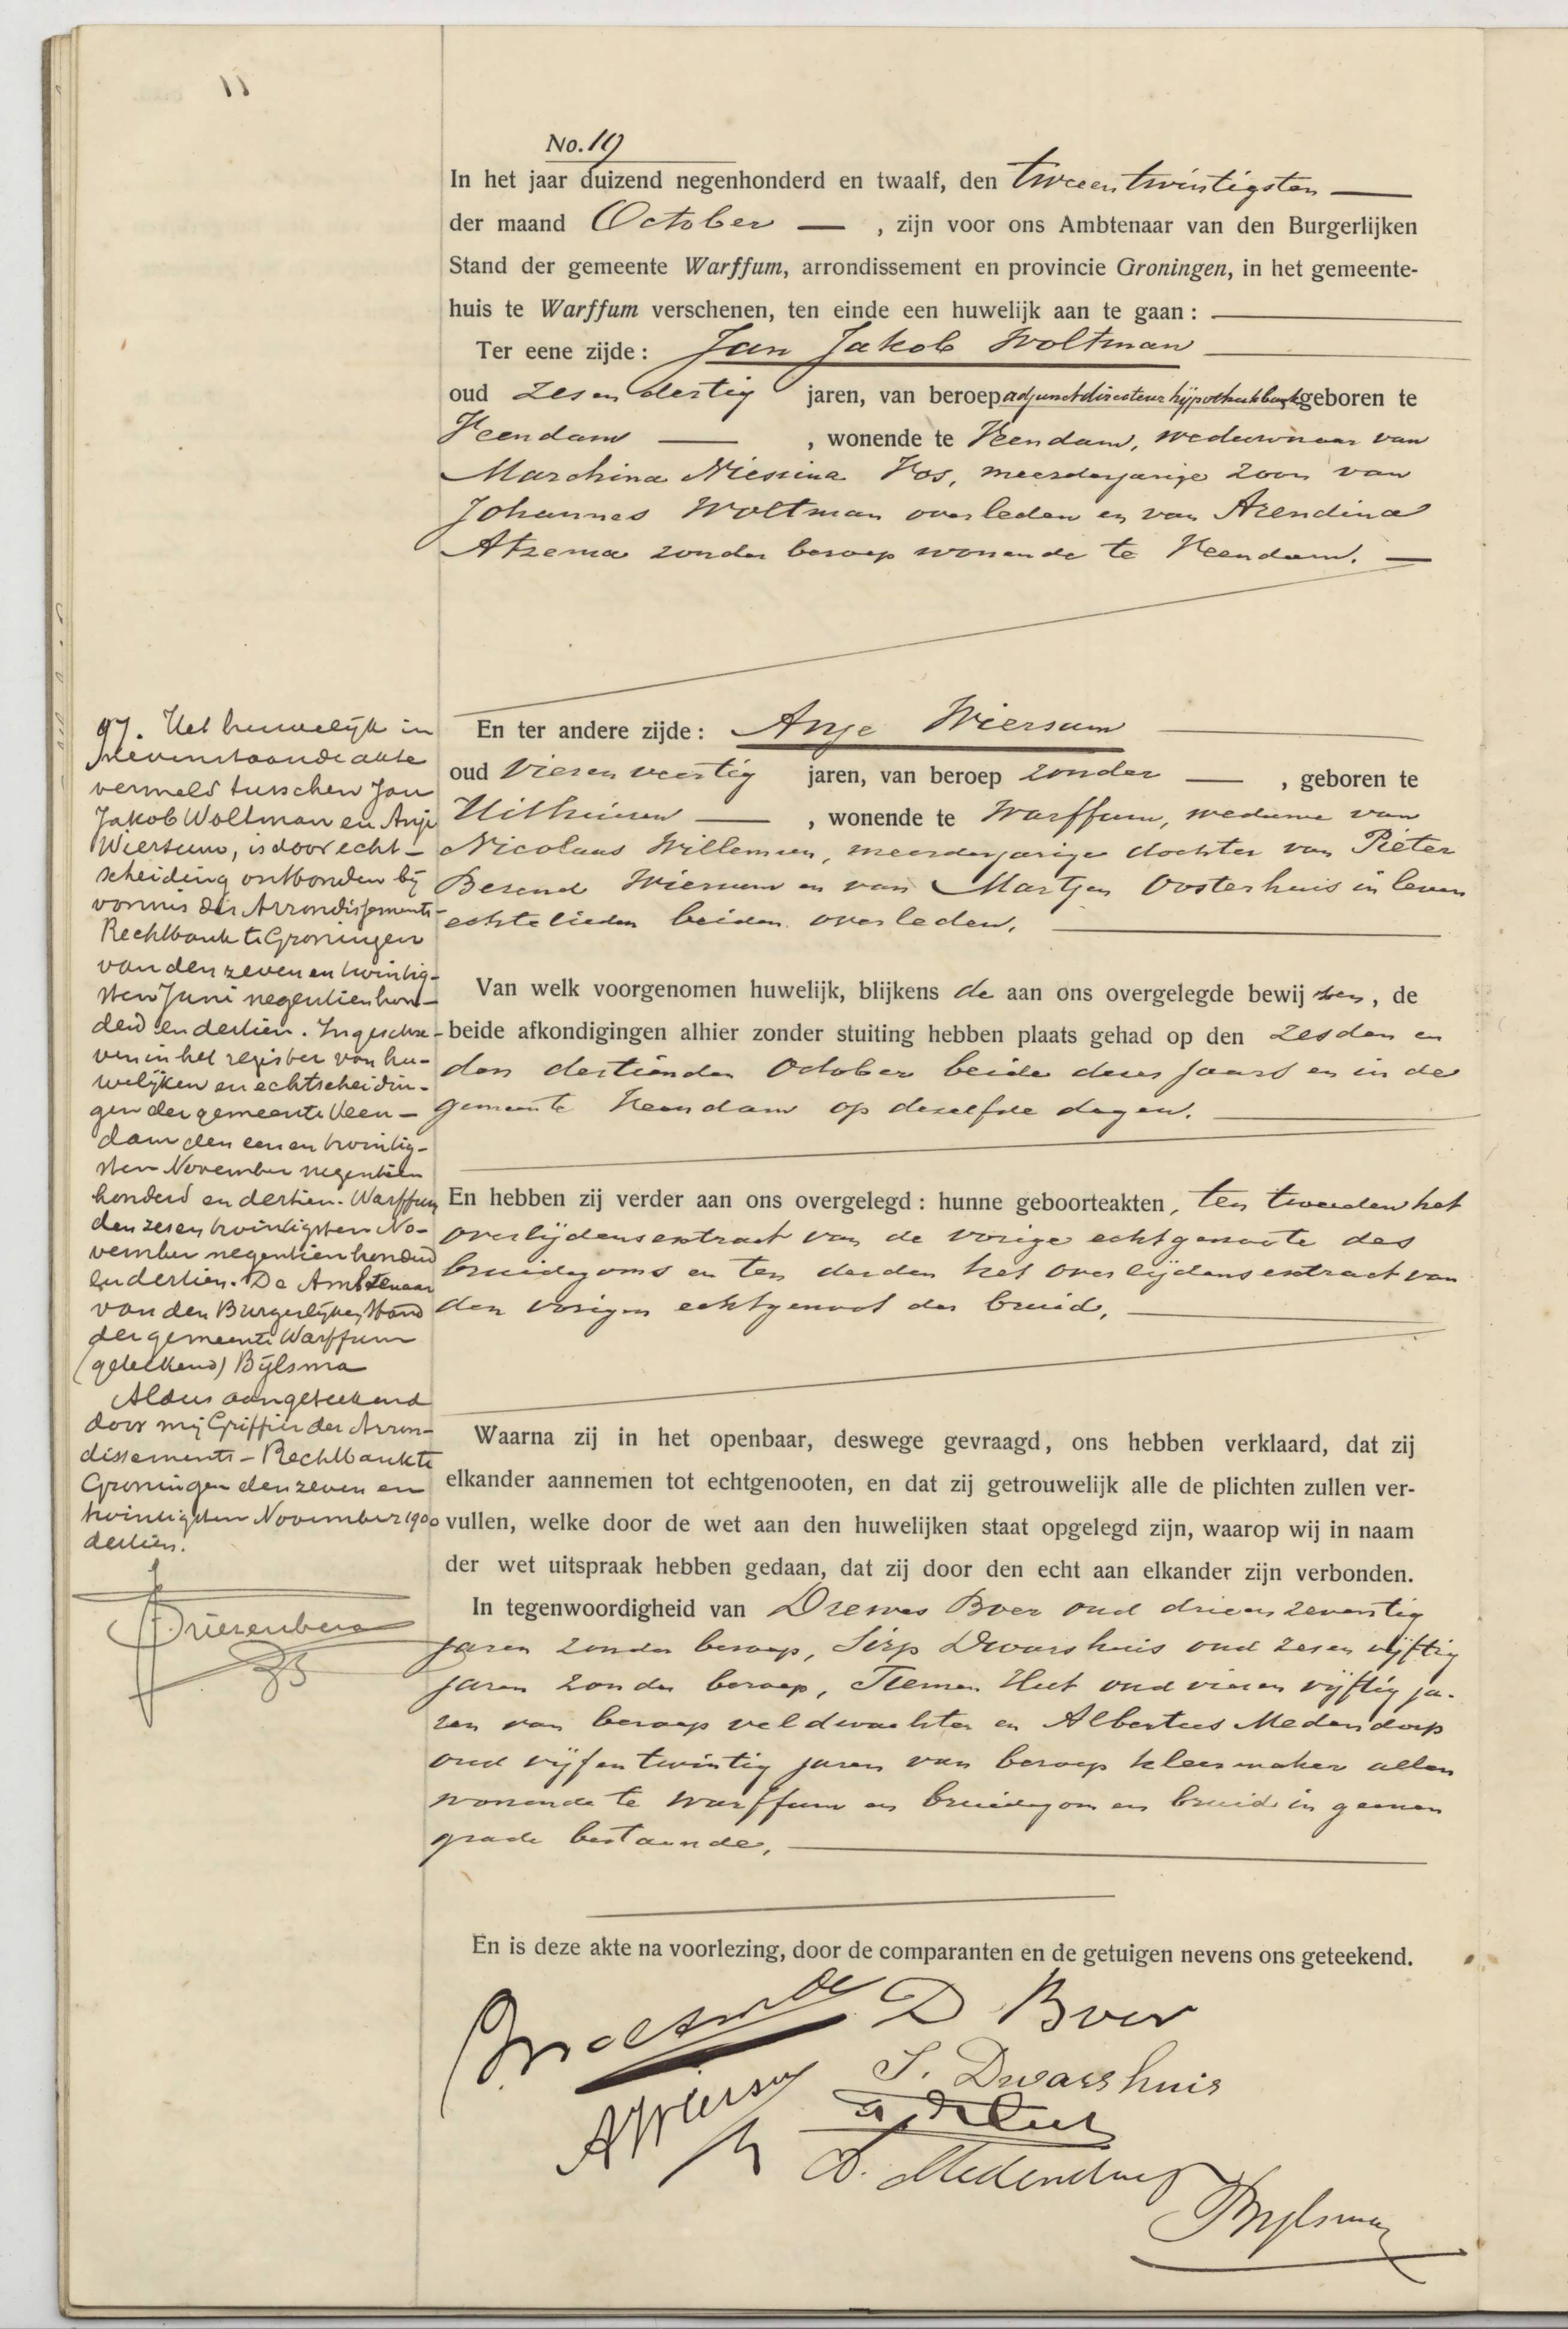 No. 19
In het jaar duizend negenhonderd en twaalf, den tweeentwintigsten
der maand October, zijn voor ons Ambtenaar van den Burgerlijken
Stand der gemeente Warffum, arrondissement en provincie Groningen, in het gemeente-
huis te Warffum verschenen, ten einde een huwelijk aan te gaan:
Ter eene zijde: Jan Jakob Woltman
oud zesendertig jaren, van beroep adjunctdirecteur hypotheekbank geboren te
Veendam, wonende te Veendam, weduwnaar van
Marchina Niessina Vos, meerderjarige zoon van
Johannes Woltman overleden en van Arendina
Atzema zonder beroep wonende te Veendam.
En ter andere zijde: Anje Wiersum
oud vierenveertig jaren, van beroep zonder, geboren te
Uithuizen, wonende te Warffum, weduwe van
Nicolaas Willemsen, meerderjarige dochter van Pieter
Berend Wiersum en van Martjen Oosterhuis in leven
echtelieden beiden overleden.
Van welk voorgenomen huwelijk, blijkens de aan ons overgelegde bewijzen, de
beide afkondigingen alhier zonder stuiting hebben plaats gehad op den zesden en
den dertienden October beide dezes jaars en in de
gemeente Veendam op dezelfde dagen.
En hebben zij verder aan ons overgelegd: hunne geboorteakten, ten tweeden het
overlijdensextract van de vorige echtgenoote des
bruidegoms en ten derden het overlijdensextract van
den vorigen echtgenoot der bruid.
Waarna zij in het openbaar, deswege gevraagd, ons hebben verklaard, dat zij
elkander aannemen tot echtgenooten, en dat zij getrouwelijk alle de plichten zullen ver-
vullen, welke door de wet aan den huwelijken staat opgelegd zijn, waarop wij in naam
der wet uitspraak hebben gedaan, dat zij door den echt aan elkander zijn verbonden.
In tegenwoordigheid van Drewes Boer oud drieenzeventig
jaren zonder beroep, Sirp Dwarshuis oud zesenvijftig
jaren zonder beroep, Tiemen Hut oud vierenvijftig ja-
ren van beroep veldwachter en Albertus Medendorp
oud vijfentwintig jaren van beroep kleermaker allen
wonende te Warffum en bruidegom en bruid in geenen
grade bestaande.
En is deze akte na voorlezing, door de comparanten en de getuigen nevens ons geteekend.
D Boer
S. Dwarshuis
AWiersum
A. Medendorp
Bijlsma
97. Het huwelijk in
nevenstaande akte
vermeld tusschen Jan
Jakob Woltman en Anje
Wiersum, is door echt-
scheiding ontbonden bij
vonnis der Arrondissements-
Rechtbank te Groningen
van den zeven en twintig-
sten Juni negentienhon-
derd en dertien. Ingeschre-
ven in het register van hu-
welijken en echtscheidin-
gen der gemeente Veen-
dam den een en twintig-
sten November negentien
honderd en dertien. Warffum
den zesentwintigsten No-
vember negentienhonderd
en dertien. De Ambtenaar
van den Burgerlijken Stand
der gemeente Warffum
(geteekend) Bijlsma
Aldus aangeteekend
door mij Griffier der Arron-
dissements-Rechtbank te
Groningen den zeven en
twintigsten November 1900
dertien.